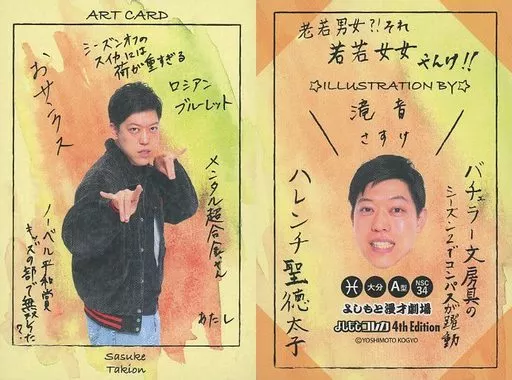 ART CARD
シーズンオフの
スイカには
荷が重すぎる
おサンクス
ロシアン
ブルーレット
メンタル超合金やん
あたし
ノーベル平和賞
キッズの部で無双してた?
Sasuke
Takion
老若男女?!それ
若若女女
やんけ!!
☆ILLUSTRATION BY☆
滝音
さすけ
バチェラー文房具の
シーズン2でコンパスが躍動
ハレンチ聖徳太子
♓ 大分 A型 NSC 34
よしもと漫才劇場
よしもとコレカ 4th Edition
©YOSHIMOTO KOGYO